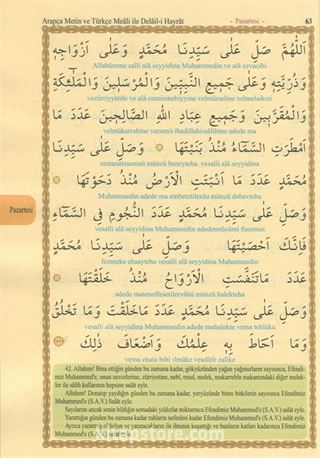 Arapça Metin ve Türkçe Meâli ile Delâil-i Hayrât
- Pazartesi -
63
اَللّٰهُمَّ صَلِّ عَلٰى سَيِّدِنَا مُحَمَّدٍ وَعَلٰى اَزْوَاجِهٖ
Allahümme salli alâ seyyidina Muhammedin ve alâ ezvacihi
وَذُرِّيَّتِهٖ وَعَلٰى جَمِيعِ النَّبِيِّينَ وَالْمُرْسَلِينَ وَالْمَلٰئِكَةِ
vezürriyyetihi ve alâ cemiinnebiyyine velmürseline velmelaiketi
وَالْمُقَرَّبِينَ وَجَمِيعِ عِبَادِ اللّٰهِ الصَّالِحِينَ عَدَدَ مَا
velmükarrabine vecemii ibadillahissâlihine adede ma
اَمْطَرَتِ السَّمَاءُ مُنْذُ بَنَيْتَهَا وَصَلِّ عَلٰى سَيِّدِنَا
emtaratissemaü münzü beneyteha vesalli alâ seyyidina
مُحَمَّدٍ عَدَدَ مَا اَنْبَتَتِ الْاَرْضُ مُنْذُ دَحَوْتَهَا
Muhammedin adede ma enbetetilerdu münzü dehavteha
وَصَلِّ عَلٰى سَيِّدِنَا مُحَمَّدٍ عَدَدَ النُّجُومِ فِى السَّمَاءِ
vesalli alâ seyyidina Muhammedin adedennücûmi fissemai
فَاِنَّكَ اَحْصَيْتَهَا وَصَلِّ عَلٰى سَيِّدِنَا مُحَمَّدٍ
feinneke ehsayteha vesalli alâ seyyidina Muhammedin
عَدَدَ مَاتَنَفَّسَتِ الْاَرْوَاحُ مُنْذُ خَلَقْتَهَا
adede mateneffesetilervâhü münzü halekteha
وَصَلِّ عَلٰى سَيِّدِنَا مُحَمَّدٍ عَدَدَ مَاخَلَقْتَ وَمَا تَخْلُقُ
vesalli alâ seyyidina Muhammedin adede mahalekte vema tehlüku
وَمَا اَحَاطَ بِهٖ عِلْمُكَ وَاَضْعَافَ ذٰلِكَ
vema ehata bihi ilmüke veadâfe zalike
Pazartesi
42. Allahım! Bina ettiğin günden bu zamana kadar, gökyüzünden yağan yağmurların sayısınca, Efendi-
miz Muhammed'e, onun zevcelerine, zürriyetine, nebi, resul, melek, mukarrebin makamındaki diğer melek-
ler ile sâlih kullarının hepsine salât eyle.
Allahım! Donatıp yaydığın günden bu zamana kadar, yeryüzünde biten bitkilerin sayısınca Efendimiz
Muhammed'e (S.A.V.) Salât eyle.
Sayılarını ancak senin bildiğin semadaki yıldızlar miktarınca Efendimiz Muhammed'e (S.A.V.) salât eyle.
Yarattığın günden bu zamana kadar ruhların nefesleri adedince Efendimiz Muhammed'e (S.A.V.) salât eyle.
Ayrıca yarattığın ve yaratacakların ile ilminin kuşattığı ve bunların katları kadarınca Efendimiz
Muhammed'e (S.A.V.) salât eyle.
kitapstore.com